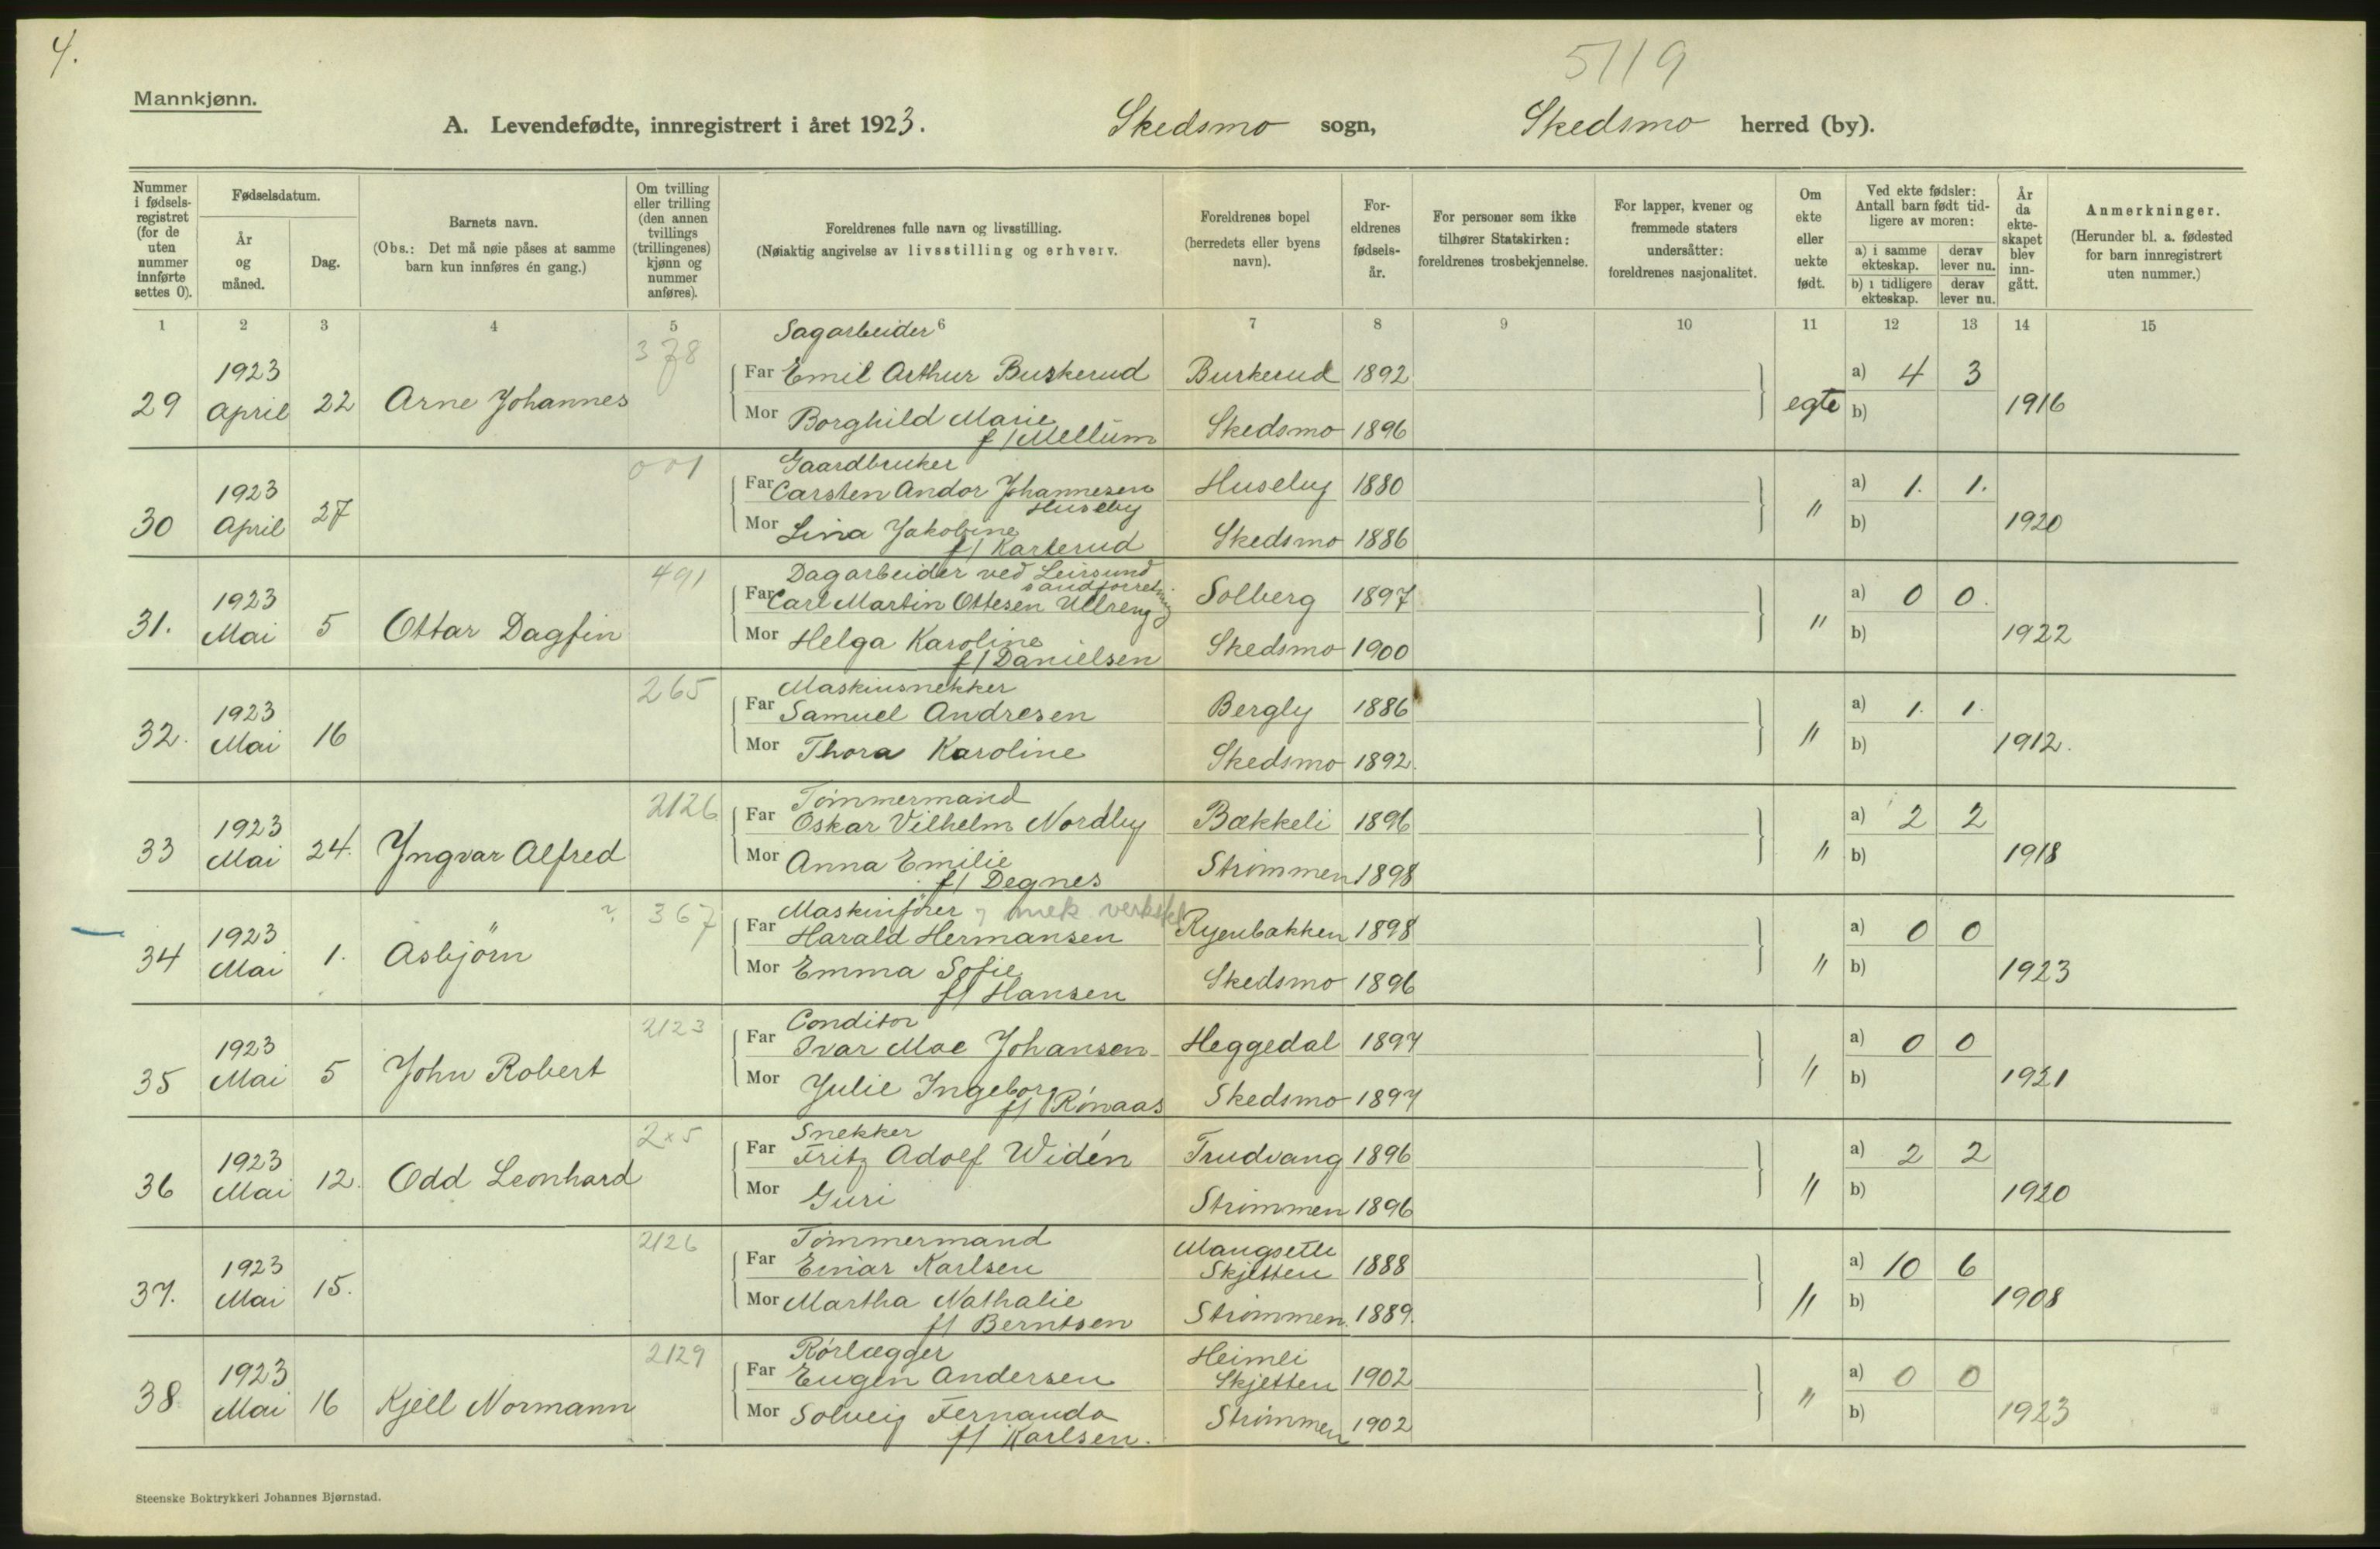 4.
5119
Mannkjønn.
A. Levendefødte, innregistrert i året 1923. Skedsmo sogn, Skedsmo herred (by).
Nummer i fødsels-registret (for de uten nummer innførte settes 0).
Fødselsdatum.
År og måned.
Dag.
Barnets navn.
(Obs.: Det må nøie påses at samme barn kun innføres én gang.)
Om tvilling eller trilling (den annen tvillings (trillingenes) kjønn og nummer anføres).
Foreldrenes fulle navn og livsstilling.
(Nøiaktig angivelse av livsstilling og erhverv.
Foreldrenes bopel (herredets eller byens navn).
For-eldrenes fødsels-år.
For personer som ikke tilhører Statskirken: foreldrenes trosbekjennelse.
For lapper, kvener og fremmede staters undersåtter: foreldrenes nasjonalitet.
Om ekte eller uekte født.
Ved ekte fødsler: Antall barn født tid-ligere av moren:
a) i samme ekteskap.
derav lever nu.
b) i tidligere ekteskap.
derav lever nu.
År da ekte-skapet blev inn-gått.
Anmerkninger.
(Herunder bl. a. fødested for barn innregistrert uten nummer.)
1 2 3 4 5 6 7 8 9 10 11 12 13 14 15
378 Sagarbeider
1923 Far Emil Arthur Buskerud Buskerud 1892 a) 4 3
29 April 22 Arne Johannes Mor Borghild Marie egte b) 1916
f/ Mellum Skedsmo 1896
001 Gaardbruker
1923 Far Carsten Andor Johannesen Huseby 1880 a) 1. 1.
Huseby
30 April 27 Mor Lina Jakobine " b) 1920
f/ Karterud Skedsmo 1886
491 Dagarbeider ved Leirsund
sandforretning
1923 Far Carl Martin Ottesen Ullreng Solberg 1897 a) 0 0.
31. Mai 5 Ottar Dagfin Mor Helga Karoline " b) 1922
f/ Danielsen Skedsmo 1900
265 Maskinsnekker
1923 Far Samuel Andresen Bergly 1886 a) 1. 1.
32. Mai 16 Mor Thora Karoline Skedsmo 1892. " b) 1912.
2126 Tømmermand
1923 Far Oskar Vilhelm Nordby Bækkeli 1896 a) 2 2
33 Mai 24. Yngvar Alfred Mor Anna Emilie " b) 1918
f/ Degnes Strømmen 1898
? 367 Maskinfører mek. verksted
1923 Far Harald Hermansen Ryenbakken 1898 a) 0 0
34 Mai 1. Asbjørn Mor Emma Sofie " b) 1923
f/ Hansen Skedsmo 1896
2123 Conditor
1923 Far Ivar Moe Johansen Heggedal 1897 a) 0 0
35 Mai 5 John Robert Mor Julie Ingeborg " b) 1921
f/ Rønaas Skedsmo 1897
2x5 Snekker
1923 Far Fritz Adolf Widén Trudvang 1896 a) 2 2
36 Mai 12. Odd Leonhard Mor Guri Strømmen 1896 " b) 1920
2126 Tømmermand
1923 Far Einar Karlsen Skjetten 1888 a) 10 6
37. Mai 15. Mor Martha Nathalie " b) 1908
f/ Berntsen Strømmen. 1889.
2129 Rørlægger Heimli
1923 Far Eugen Andersen Skjetten 1902 a) 0 0
38. Mai 16 Kjell Normann Mor Solveig Fernanda " b) 1923
f/ Karlsen. Strømmen 1902
Steenske Boktrykkeri Johannes Bjørnstad.